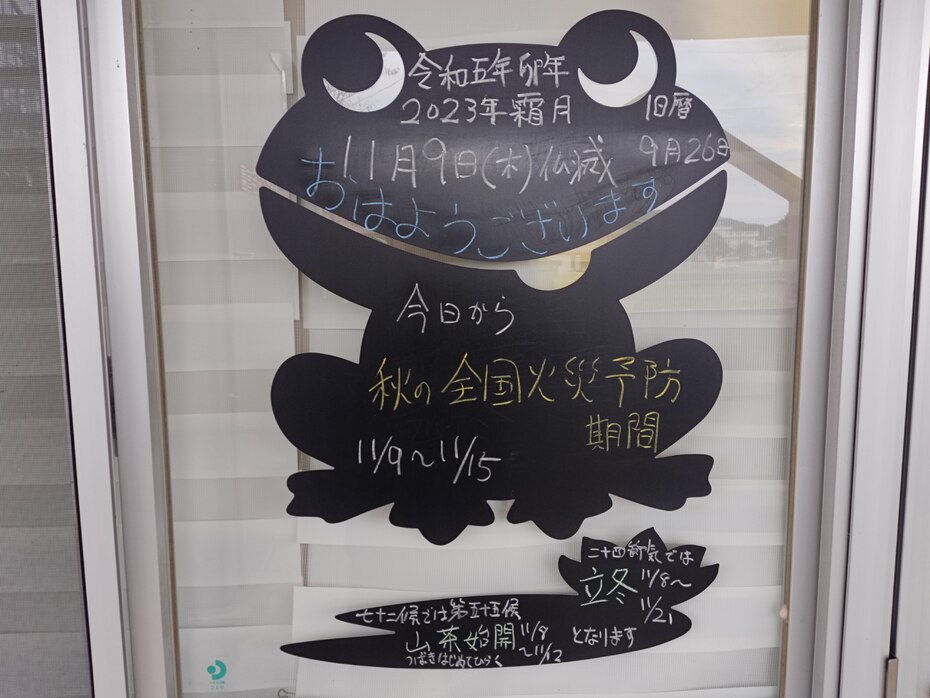 令和五年卯年
2023年霜月
旧暦
11月9日(木)仏滅
9月26日
おはようございます
今日から
秋の全国火災予防
期間
11/9〜11/15
二十四節気では
立冬 11/8〜
11/21
七十二候では第五十五候
山茶始開 11/8
〜11/12
となります
つばきはじめてひらく